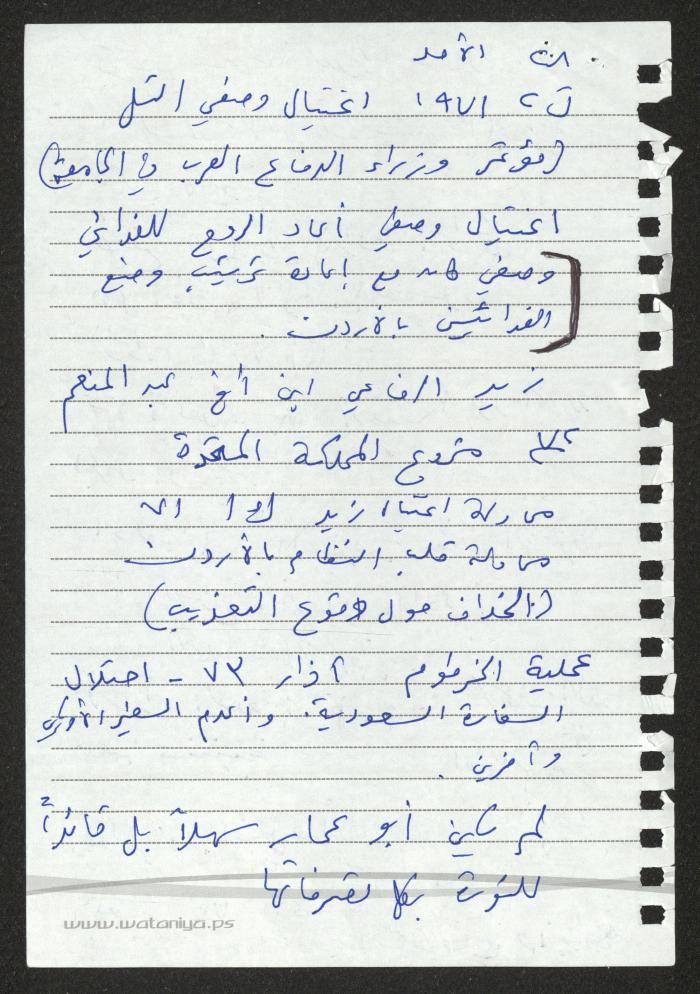 الأحد
ت٢ ١٩٧١ اغتيال وصفي التل
(مؤتمر وزراء الدفاع العرب في الجامعة)
اغتيال وصفي أعاد الروح للفدائي
وصفي كان مع إعادة ترتيب وضع
الفدائيين بالأردن.
زيد الرفاعي ابن أخ عبد المنعم
٧٢ مشروع المملكة المتحدة
محاولة اغتيال زيد ك١ ٧١
محاولة قلب النظام بالأردن
(الخلاف حول موضوع التعذيب)
عملية الخرطوم آذار ٧٣ - احتلال
السفارة السعودية. وأعدم السفير الأمريكي
وآخرين.
لم يكن أبو عمار سهلاً بل قائداً
للثورة بكل تصرفاتها
www.wataniya.ps